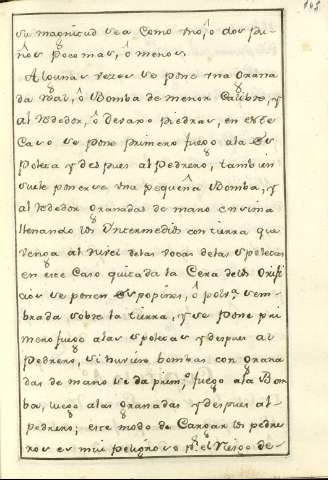 su magnitud sea como uno, ô dos pu-
ños poco mas, ô menos.
Algunas vezes se pone una Grana
da Real, ô Bomba de menor Calibre, y
al rededor, ô devaxo piedras, en este
Caso se pone primero fuego ala Es
poleta y despues al Pedrero, tambien
suele ponerse una pequeña Bomba, y
al rededor Granadas de mano encima
llenando los Yntermedios con tierra que
venga al nivel delas vocas delas espoletas
en este Caso quitada la Cera delos Orifi
cios se ponen Estopines, ô polv.ª sem-
brada sobre la tierra, y se pone pri
mero fuego alas espoletas y despues al
Pedrero, si huviere bombas con Grana
das de mano se da prim.º fuego ala Bom
ba, luego alas Granadas y despues al
Pedrero; este modo de Cargar los pedre
ros es mui peligroso p.r el riesgo de-